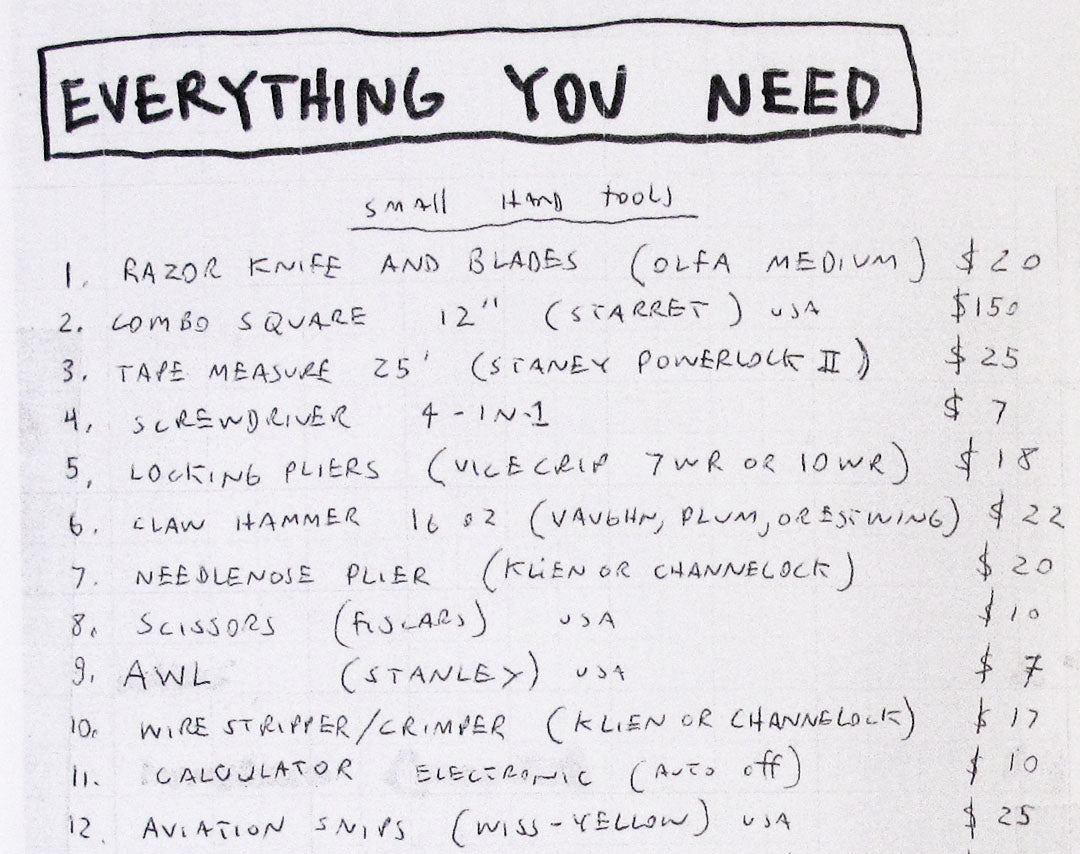 EVERYTHING YOU NEED
SMALL HAND TOOLS
1. RAZOR KNIFE AND BLADES (OLFA MEDIUM) $20
2. COMBO SQUARE 12" (STARRET) USA $150
3. TAPE MEASURE 25' (STANEY POWERLOCK II) $25
4. SCREWDRIVER 4-IN-1 $7
5. LOCKING PLIERS (VICEGRIP 7WR OR 10WR) $18
6. CLAW HAMMER 16 oz (VAUGHN, PLUM, OR ESTWING) $22
7. NEEDLENOSE PLIER (KLIEN OR CHANNELOCK) $20
8. SCISSORS (FISCARS) USA $10
9. AWL (STANLEY) USA $7
10. WIRE STRIPPER/CRIMPER (KLIEN OR CHANNELOCK) $17
11. CALCULATOR ELECTRONIC (AUTO OFF) $10
12. AVIATION SNIPS (WISS-YELLOW) USA $25